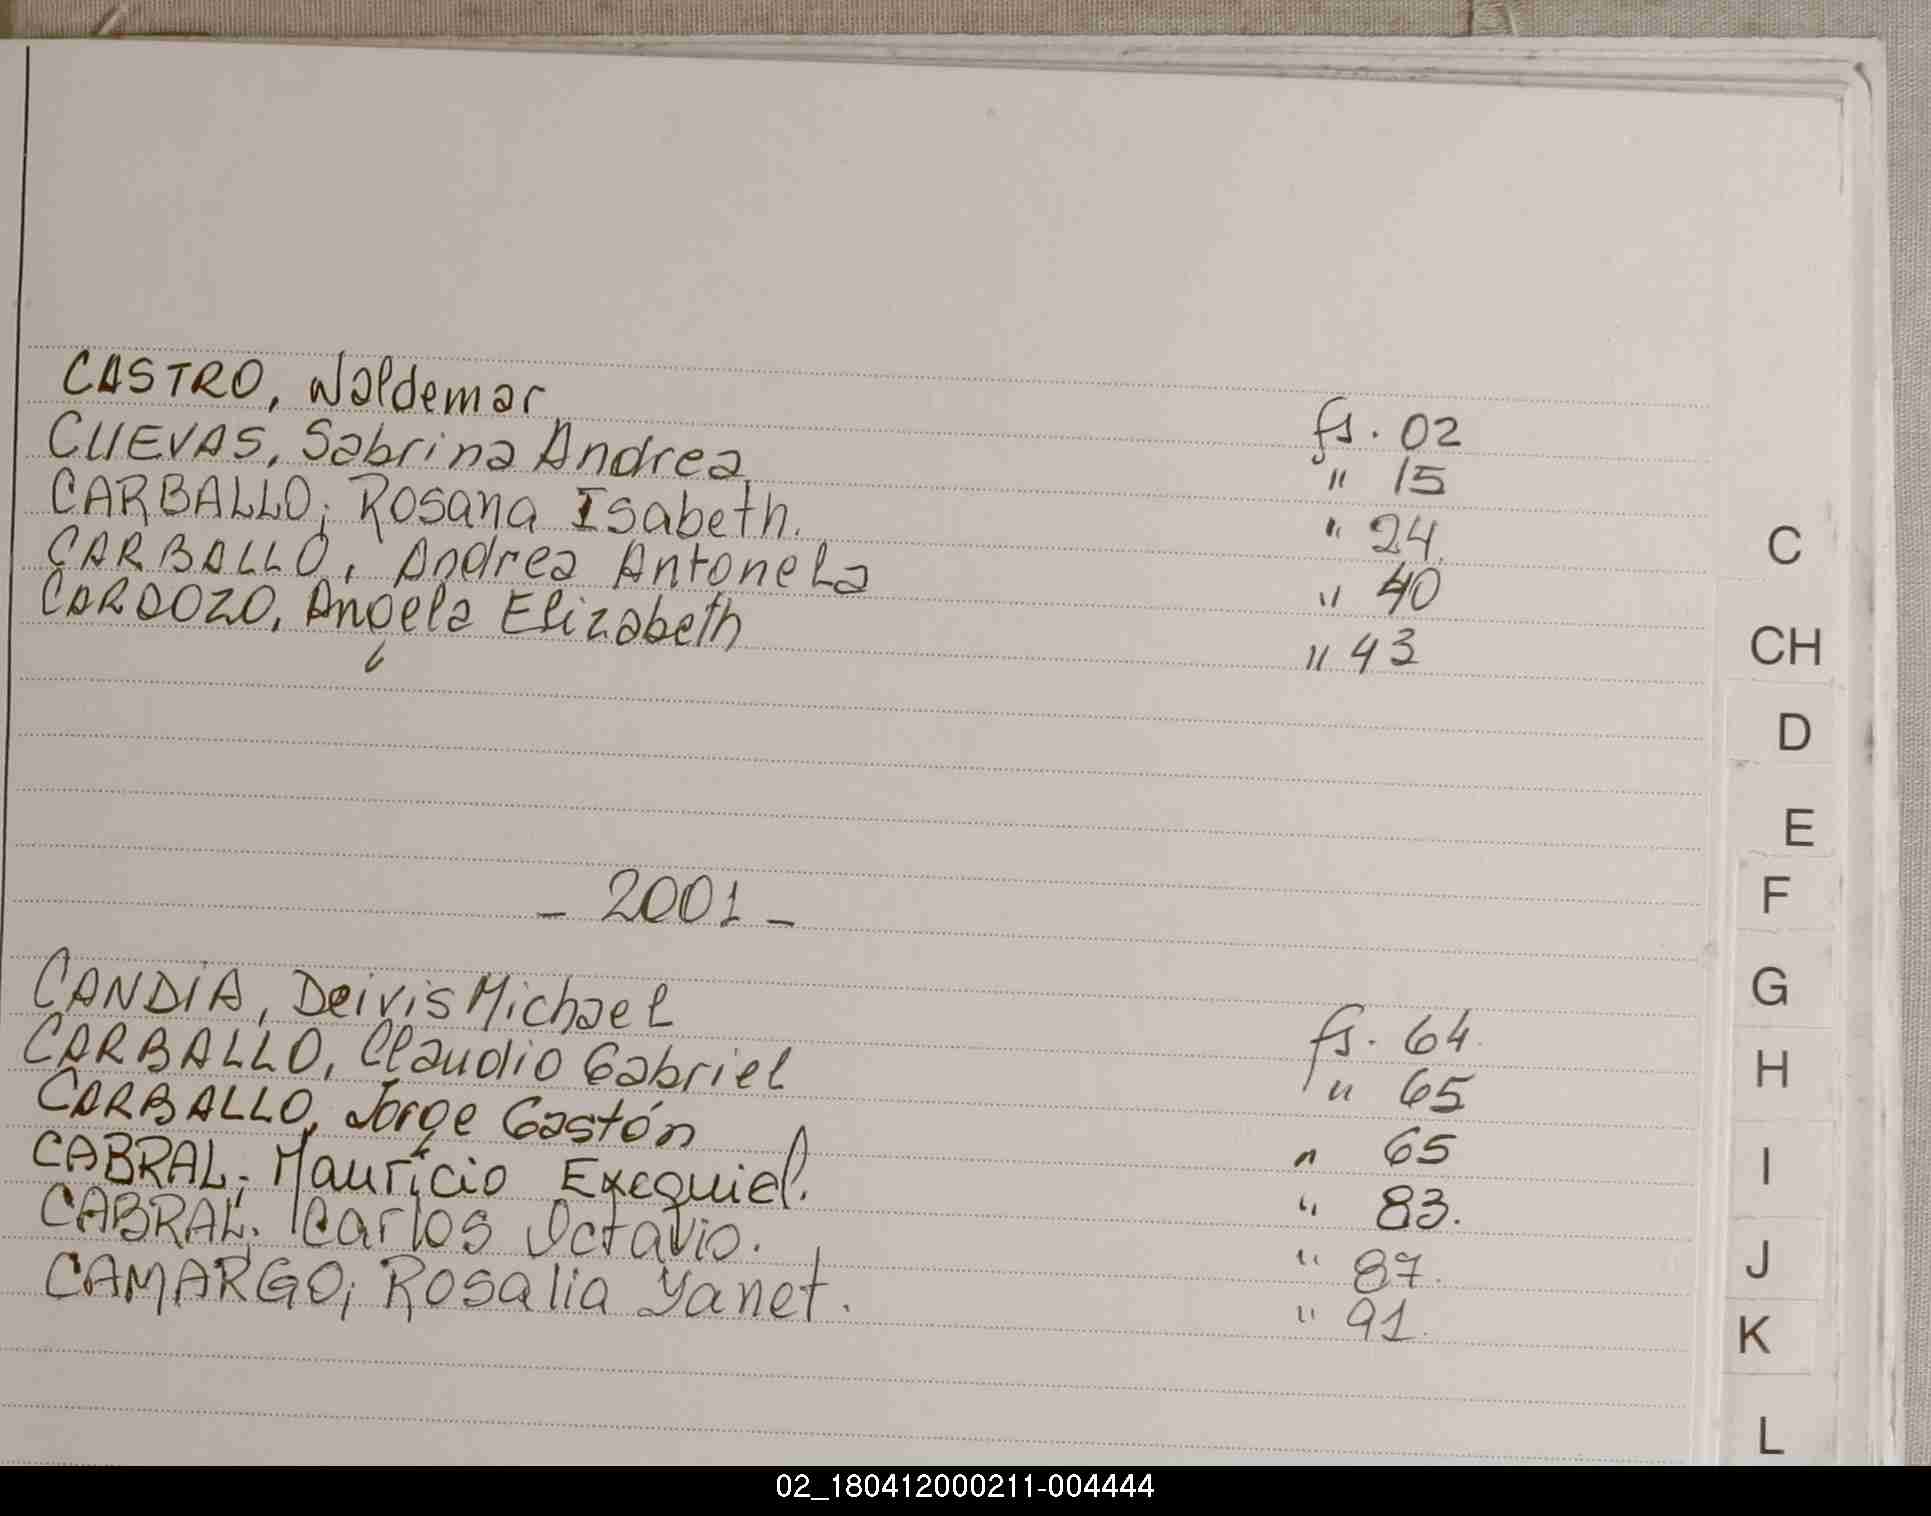 CASTRO, Waldemar fs. 02
CUEVAS, Sabrina Andrea " 15
CARBALLO; Rosana Isabeth. " 24.
CARBALLO, Andrea Antonela " 40
CARDOZO, Angela Elizabeth " 43
- 2001 -
CANDIA, Deivis Michael fs. 64.
CARBALLO, Claudio Gabriel " 65
CARBALLO, Jorge Gastón " 65
CABRAL; Mauricio Exequiel. " 83.
CABRAL; Carlos Octavio. " 87.
CAMARGO; Rosalia Yanet. " 91.
C
CH
D
E
F
G
H
I
J
K
L
02_180412000211-004444